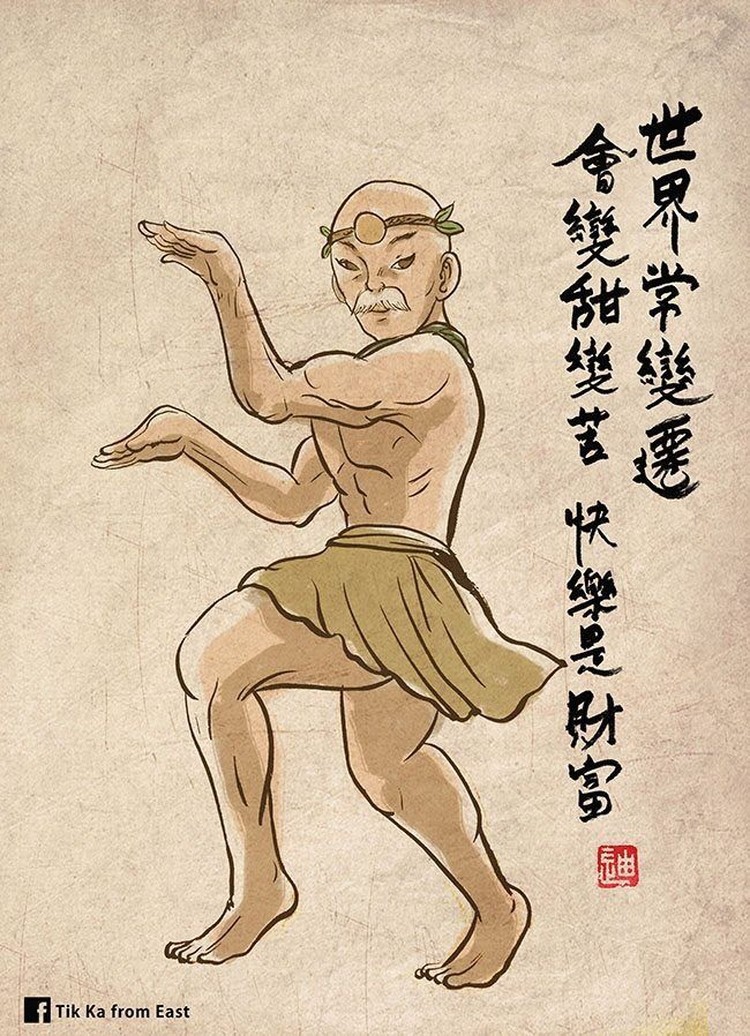 世界常變遷
會變甜變苦 快樂是財富
迪
Tik Ka from East